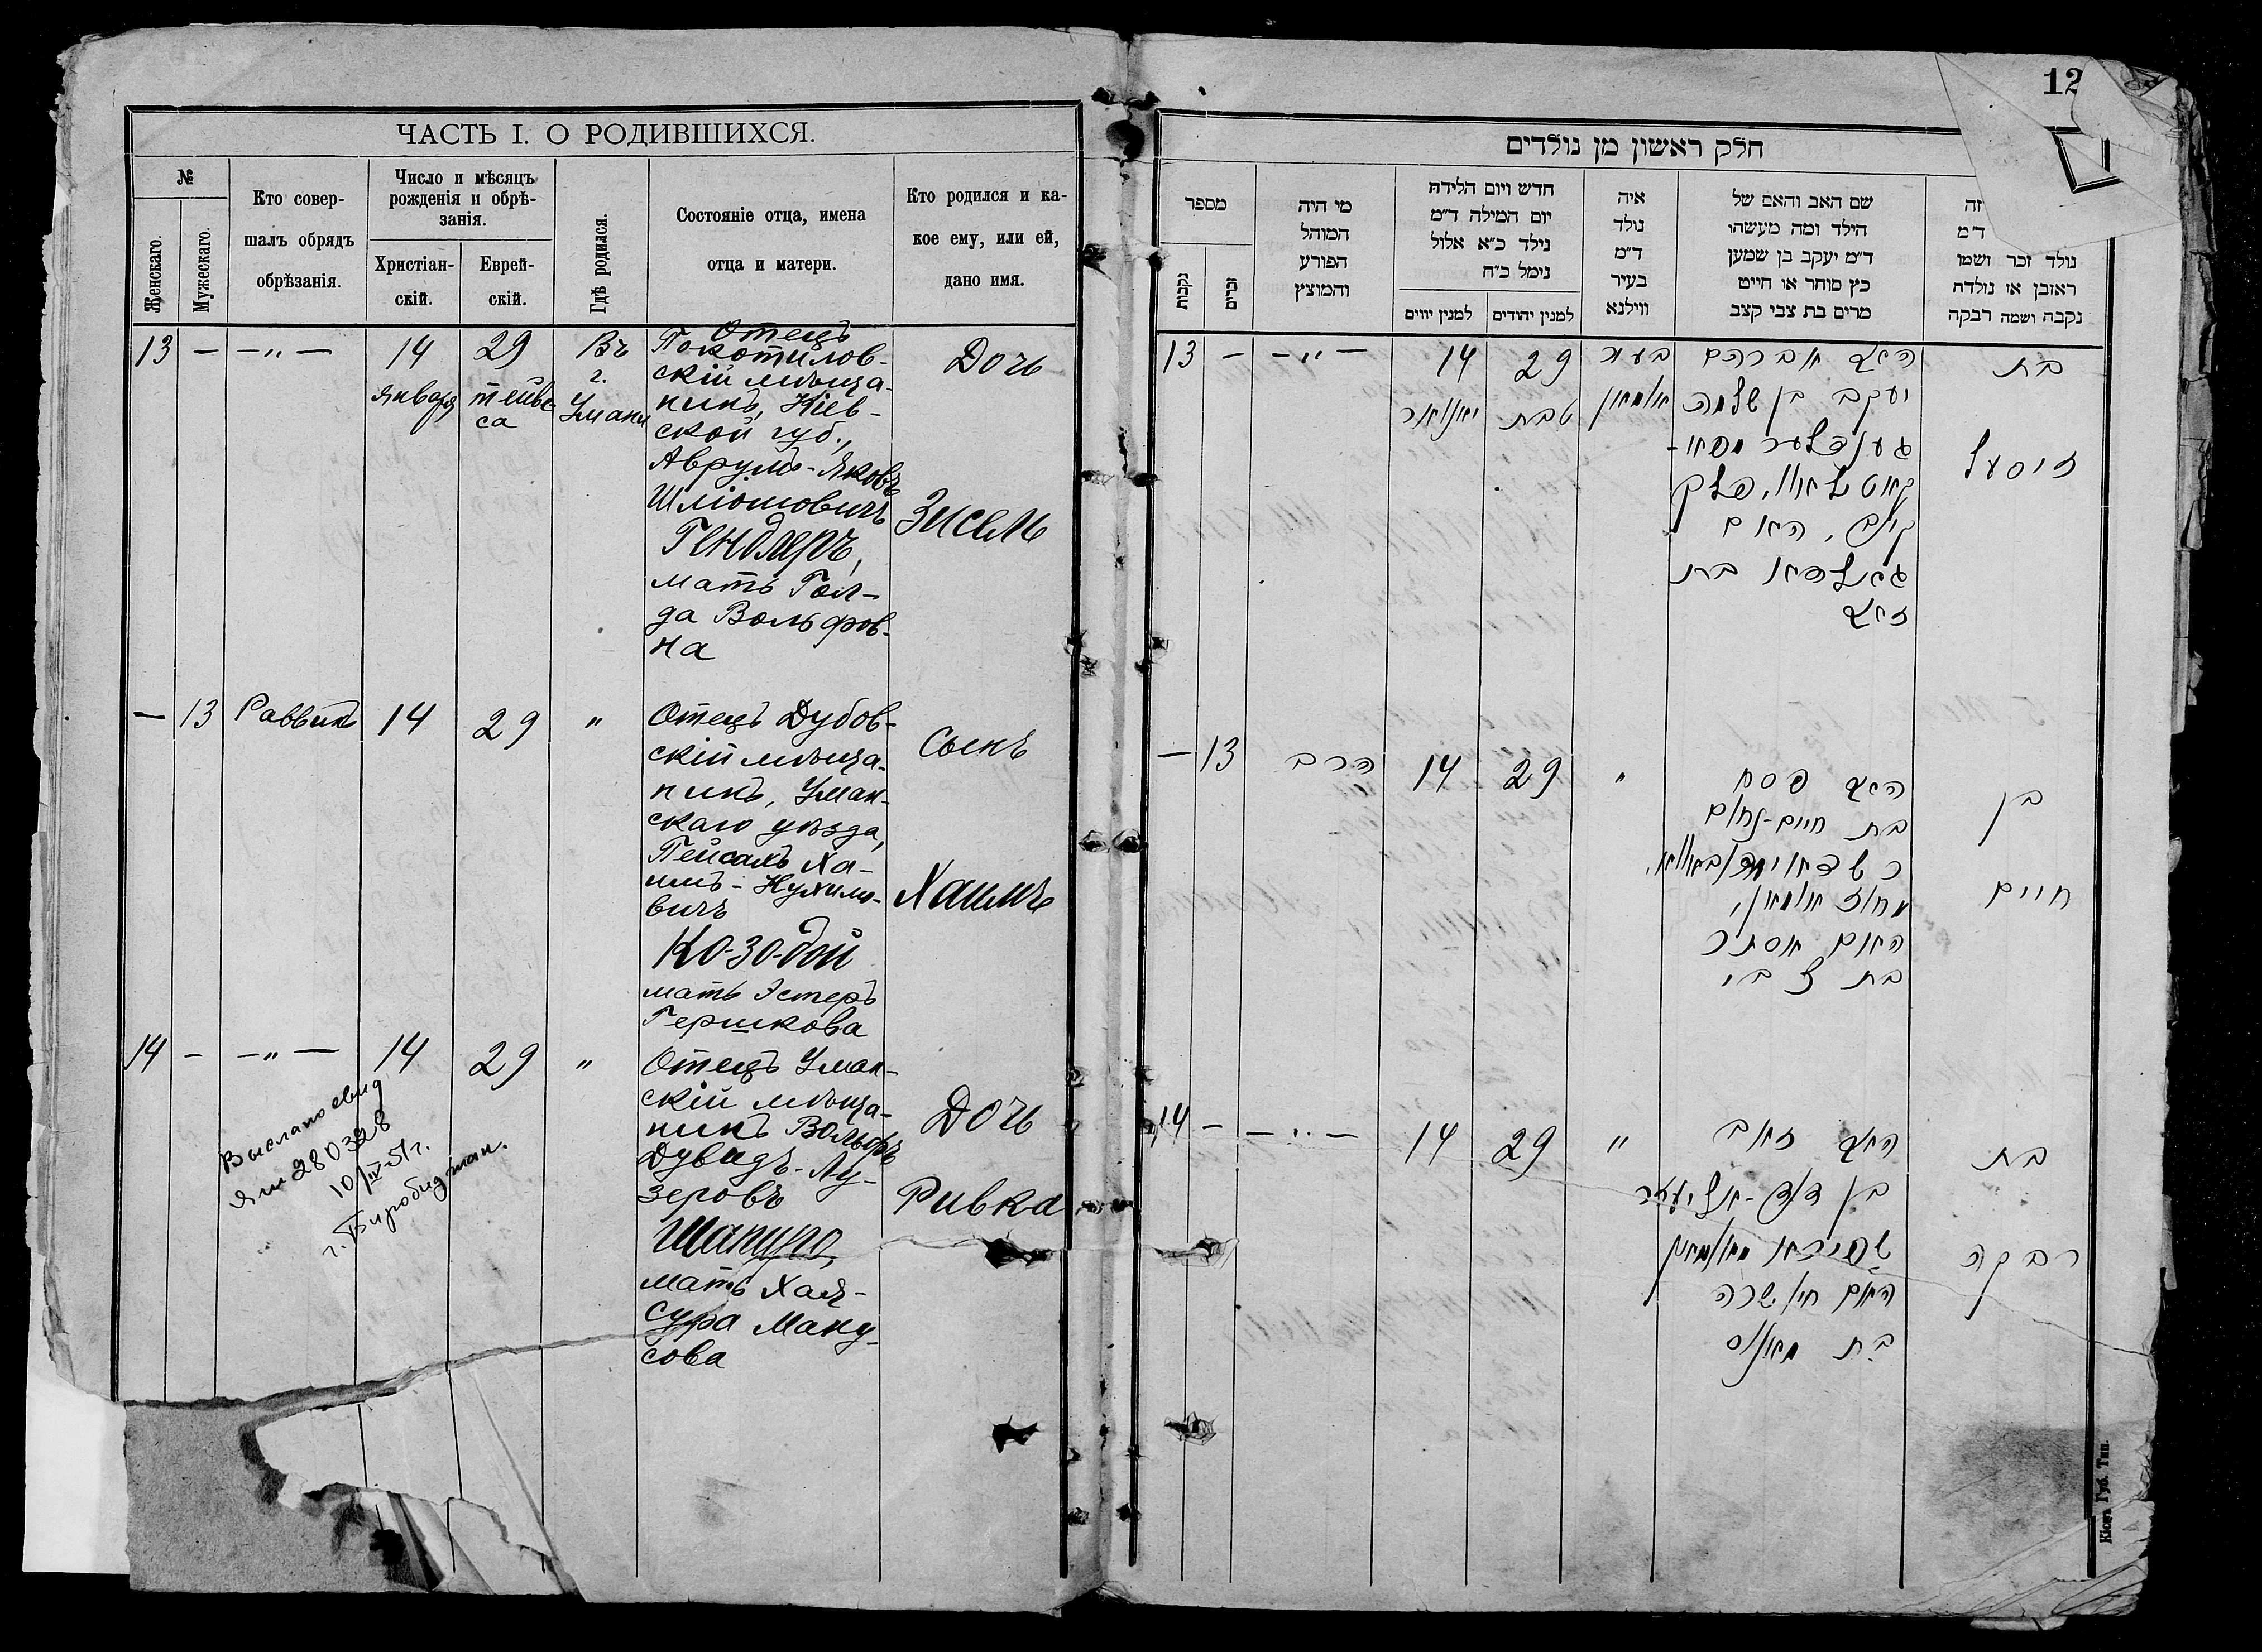 ЧАСТЬ I. О РОДИВШИХСЯ.
№
Женскаго.
Мужескаго.
Кто совер-
шалъ обрядъ
обрѣзанія.
Число и мѣсяцъ
рожденія и обрѣ-
занія.
Христіан-
скій.
Еврей-
скій.
Гдѣ родился.
Состояніе отца, имена
отца и матери.
Кто родился и ка-
кое ему, или ей,
дано имя.
13 — —„— 14 29 Въ
января тейве
са
г.
Умани
Отецъ
Покотилов-
скій мѣща-
нинъ, Кіев-
ской губ.,
Аврумъ-Яковъ
Шліомовичъ
Гендлеръ,
мать Гол-
да Вольфов-
на
Дочь
Зисель
— 13 Раввинъ 14 29 „
Отецъ Дубов-
скій мѣща-
нинъ, Уман-
скаго уѣзда,
Пейсахъ Ха-
имъ-Нухимо-
вичъ
Ко-зо-дой
мать Эстеръ
Гершкова
Сынъ
Хаимъ
14 — —„— 14 29 „
Отецъ Уман-
скій мѣща-
нинъ Вольфъ
Дувидъ-Лу-
зеровъ
Шапиро,
мать Хая-
Сура Ману-
сова
Дочь
Ривка
Выслано свид
ЯЮ 280328
10/IV-51г.
г. Биробиджан.
12
חלק ראשון מן נולדים
מספר
נקבות
זכרים
מי היה
המוהל
הפורע
והמוצץ
חדש ויום הלידה
יום המילה ד״מ
נילד כ״א אלול
נימל כ״ח
למנין יווים
למנין יהודים
איה
נולד
ד״מ
בעיר
ווילנא
שם האב והאם של
הילד ומה מעשהו
ד״מ יעקב בן שמען
כץ סוחר או חייט
מרים בת צבי קצב
זה
ד״מ
נולד זכר ושמו
ראובן או נולדה
נקבה ושמה רבקה
13 — —„— 14 29
יאנואר טבת
בעיר
אומאן
האב אברהם
יעקב בן שלמה
גענדלער מפא-
קאטילאוו, פלך
קיוב, האם
גאלדא בת
זאב
בת
זיסעל
— 13 הרב 14 29 „
האב פסח
בת חיים-נחום
מחוז אומאן,
האם אסתר
בת צבי
בן
חיים
14 — —„— 14 29 „
האב זאב
בן דוד-אליעזר
שפירא מאומאן
האם חיה שרה
בת מאנוס
בת
רבקה
Кіевъ Губ. Тип.